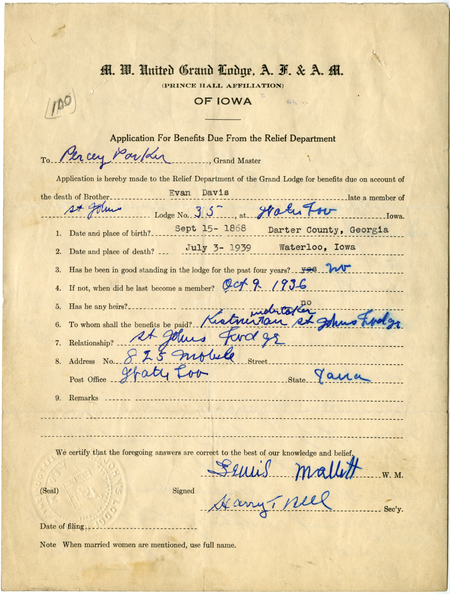 M. W. United Grand Lodge, A. F. & A. M.
(PRINCE HALL AFFILIATION)
OF IOWA
100
Application For Benefits Due From the Relief Department
To Percy Parker, Grand Master
Application is hereby made to the Relief Department of the Grand Lodge for benefits due on account of
the death of Brother Evan Davis late a member of
St Johns Lodge No. 35, at Waterloo Iowa.
1. Date and place of birth? Sept 15- 1868 Darter County, Georgia
2. Date and place of death? July 3- 1939 Waterloo, Iowa
3. Has he been in good standing in the lodge for the past four years? yes no
4. If not, when did he last become a member? Oct 9. 1936
5. Has he any heirs? no
undertaker
6. To whom shall the benefits be paid? St Johns Lodge
7. Relationship? St Johns Lodge
8. Address No. 825 Mobile Street
Post Office Waterloo State Iowa
9. Remarks
We certify that the foregoing answers are correct to the best of our knowledge and belief.
Lewis Mallett W. M.
(Seal) Signed
Harry T Nell Sec'y.
Date of filing
Note When married women are mentioned, use full name.